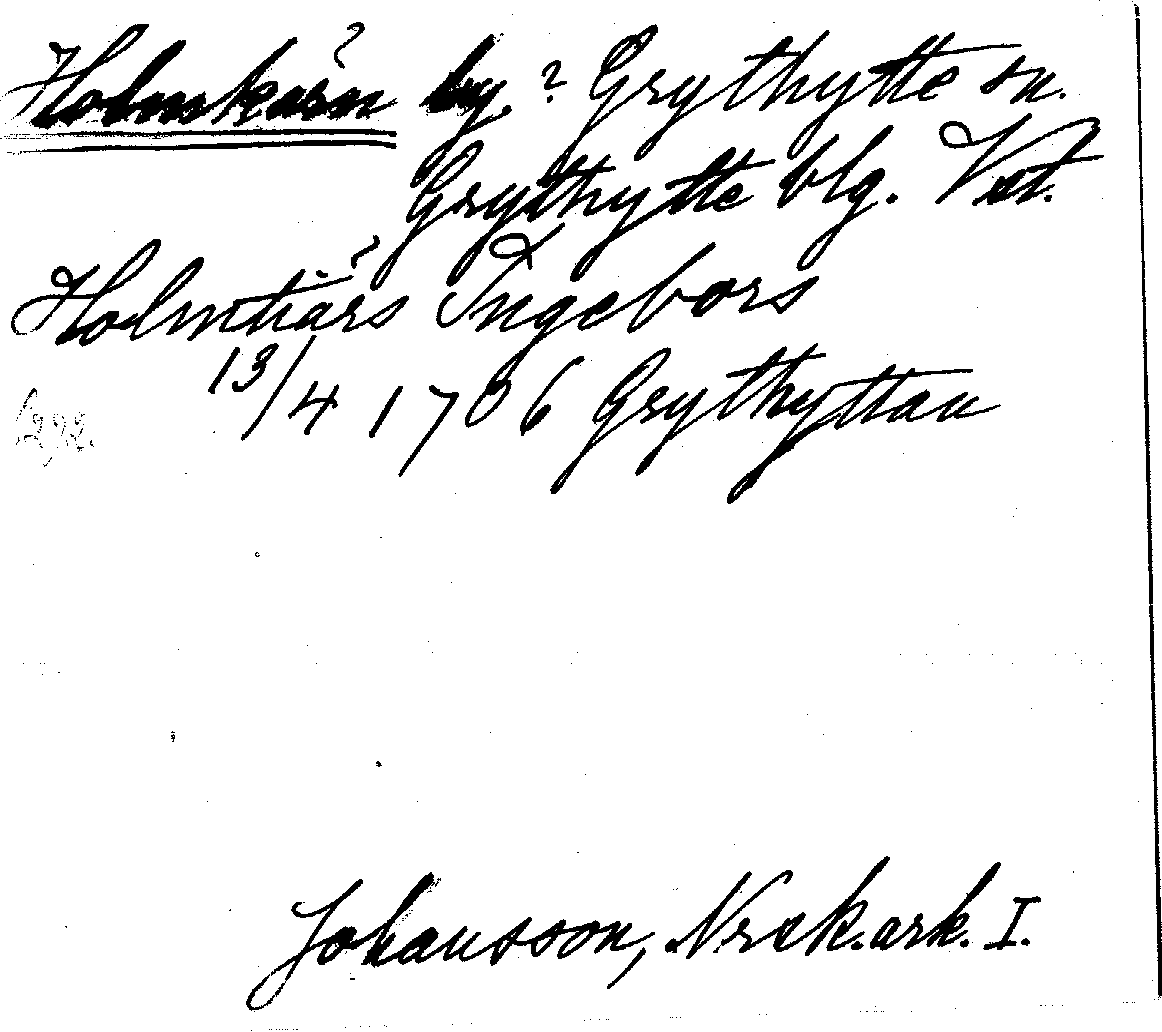 Holmkärn by.? Grythytte sn.
Grythytte blg. Vstl.
Holmtiärs Ingebors
13/4 1706 Grythyttan
Johansson, Nrck.ark. I.